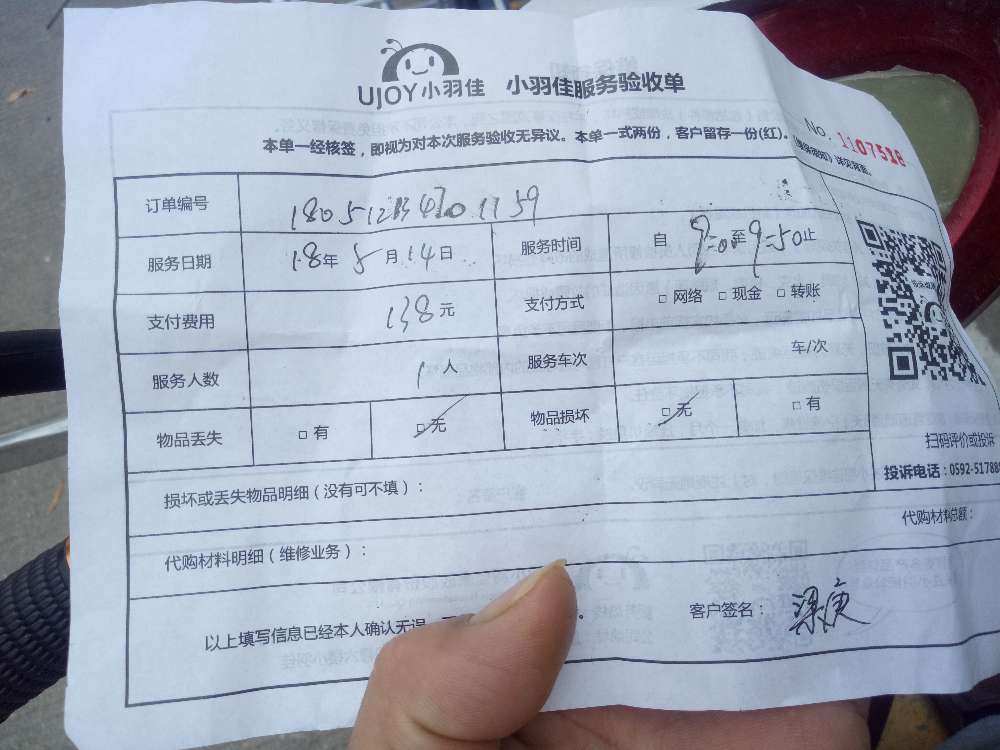 UJOY小羽佳 小羽佳服务验收单
No. 1107518
本单一经核签，即视为对本次服务验收无异议。本单一式两份，客户留存一份(红)。
详见背面。
订单编号
服务日期 18年5月14日 服务时间 自9:00至9:50止
支付费用 138元 支付方式 □ 网络 □ 现金 □ 转账
服务人数 1人 服务车次 车/次
物品丢失 □ 有 □ 无 物品损坏 □ 无 □ 有
扫码评价或投诉
投诉电话：0592-517888
损坏或丢失物品明细（没有可不填）：
代购材料明细（维修业务）： 代购材料总额：
以上填写信息已经本人确认无误 客户签名：